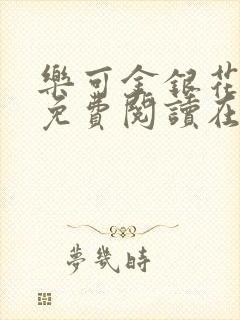 樂可金銀花
免費閱讀在
夢幾時